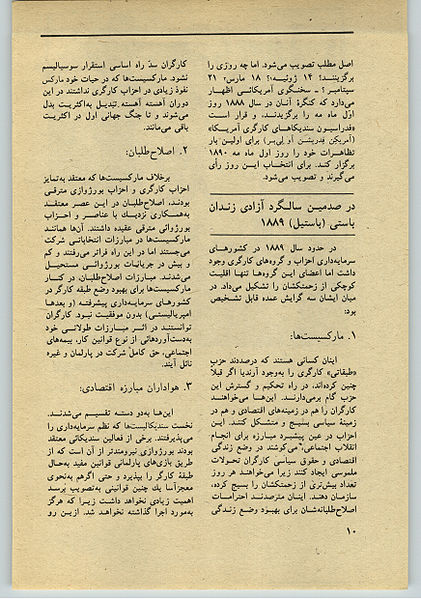 اصل مطلب تصویب می‌شود. اما چه روزی را
برگزینند؟ ۱۴ ژوئیه؟ ۱۸ مارس؟ ۲۱
سپتامبر؟ ـ سخنگوی آمریکائی اظهار
می‌دارد که کنگرهٔ آنان در سال ۱۸۸۸ روز
اوّل ماه مه را برگزیدند، و قرار است
«فدراسیون سندیکاهای کارگری آمریکا»
(امریکن فدریشن آو لی‌بر) برای اولین بار
تظاهرات خود را روز اول ماه مه ۱۸۹۰
برگزار کند. برای انتخاب این روز رأی
می‌گیرند و تصویب می‌شود.
در صدمین سالگرد آزادی زندان
باستی (باستیل) ۱۸۸۹
در حدود سال ۱۸۸۹ در کشورهای
سرمایه‌داری احزاب و گروه‌های کارگری وجود
داشت اما اعضای این گروه‌ها تنها اقلیت
کوچکی از زحمتکشان را تشکیل می‌داد. در
میان ایشان سه گرایش عمده قابل تشخیص
بود:
۱. مارکسیست‌ها:
اینان کسانی هستند که درصددند حزب
«طبقاتی» کارگری را به‌وجود آرند؛ یا اگر قبلاً
چنین کرده‌اند، در راه تحکیم و گسترش این
حزب گام برمی‌دارند. این‌ها می‌خواهند
کارگران را هم در زمینه‌های اقتصادی و هم در
زمینهٔ سیاسی بسیج و متشکل کنند. این
احزاب در عین پیشبرد مبارزه برای انجام
انقلاب اجتماعی، می‌کوشند در وضع زندگی
اقتصادی و حقوق سیاسی کارگران تحولات
ملموسی ایجاد کنند زیرا می‌خواهند هر روز
تعداد بیش‌تری از زحمتکشان را بسیج کرده،
سازمان دهند. اینان مترصدند احترامات
اصلاح‌طلبانه‌شان برای بهبود وضع زندگی
کارگران سدّ راه اساسی استقرار سوسیالیسم
نشود. مارکسیست‌ها که در حیات خود مارکس
نفوذ زیادی در احزاب کارگری نداشتند در این
دوران آهسته آهسته تبدیل به‌اکثریت بدل
می‌شوند و تا جنگ جهانی اول در اکثریت
باقی می‌مانند.
۲. اصلاح‌طلبان:
برخلاف مارکسیست‌ها که معتقد به‌تمایز
احزاب کارگری و احزاب بورژوازی مترقی
بودند، اصلاح‌طلبان در این عصر معتقد
به‌همکاری نزدیك با عناصر و احزاب
بورژوائی مترقی عقیده داشتند. آن‌ها همانند
مارکسیست‌ها در مبارزات انتخاباتی شرکت
می‌جستند اما در این راه فراتر می‌رفتند و کم
و بیش در جریانات بورژوائی مستحیل
می‌شدند. مبارزات اصلاح‌طلبان، در کنار
مارکسیست‌ها برای بهبود وضع طبقه کارگر در
کشورهای سرمایه‌داری پیشرفته (و بعدها
امپریالیستی) بدون موفقیت نبود. کارگران
توانستند در اثر مبارزات طولانی خود
به‌دست‌آوردهائی از نوع قوانین کار، بیمه‌های
اجتماعی، حق کامل شرکت در پارلمان و غیره
نائل آیند.
۳. هواداران مبارزه اقتصادی:
این‌ها به‌دو دسته تقسیم می‌شدند.
نخست سندیکالیست‌ها که نظم سرمایه‌داری را
می‌پذیرفتند. برخی از فعالین سندیکائی معتقد
بودند بورژوازی نیرومندتر از آن است که از
طریق بازی‌های پارلمانی قوانین مفید به‌حال
طبقهٔ کارگر را بپذیرد و حتی اگرهم به‌نحوی
معجزآسا یك چنین قوانینی به‌تصویب برسد
اهمیت زیادی نخواهد داشت زیرا که هرگز
به‌مورد اجرا گذاشته نخواهد شد. ازین رو
۱۰